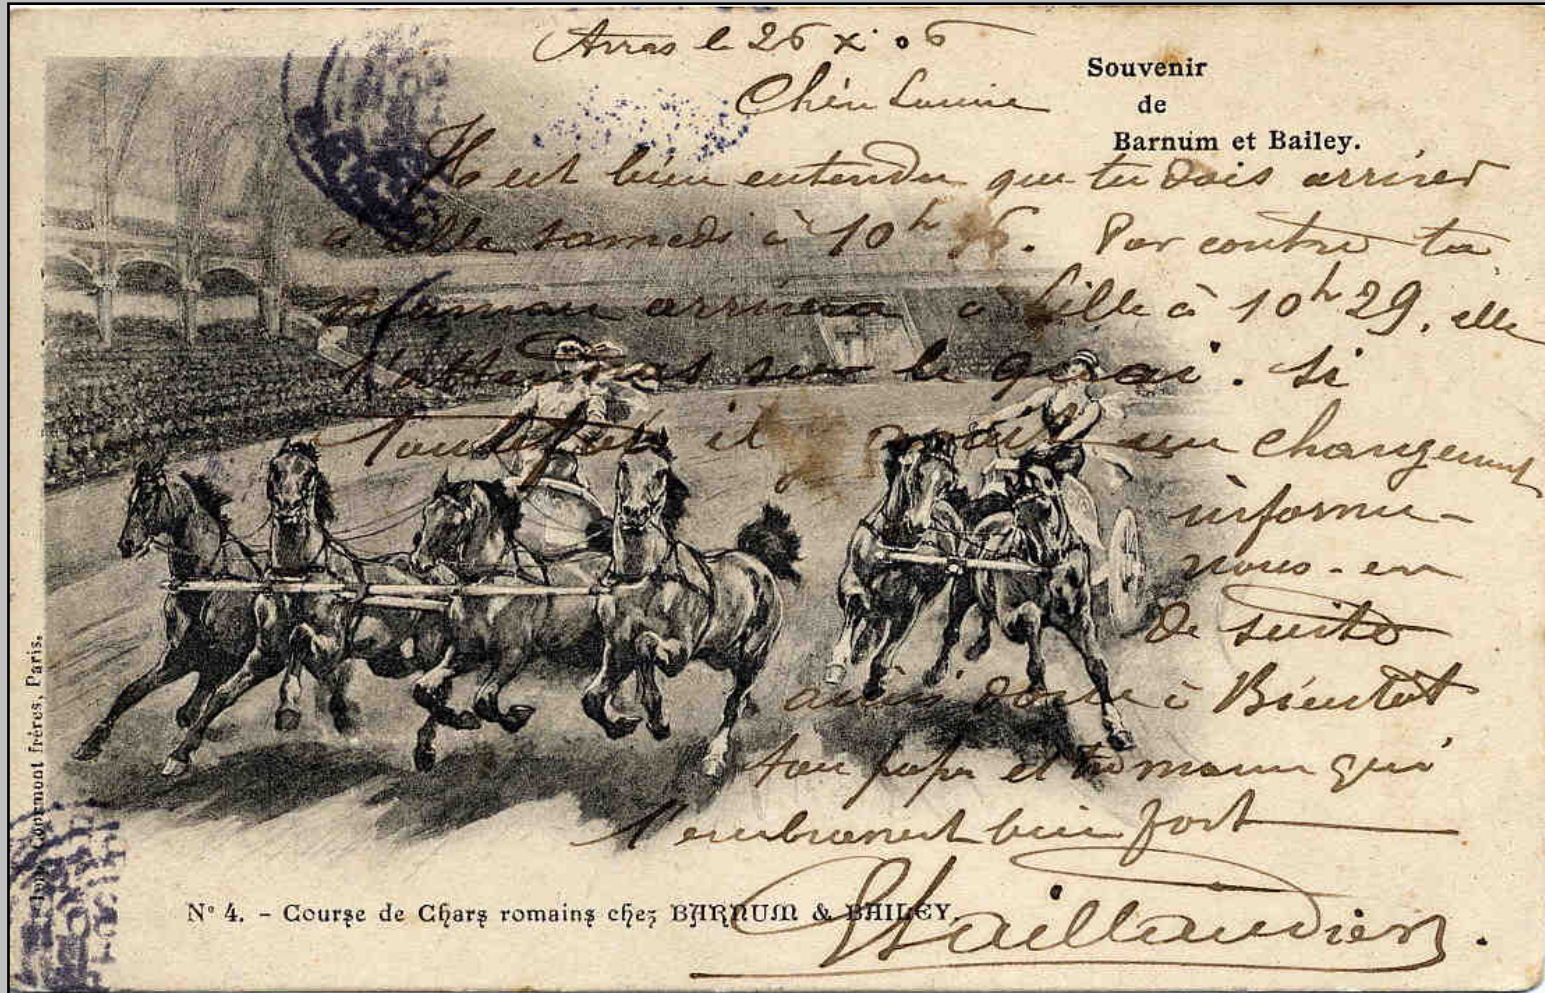 Arras le 26 X. 06
Souvenir
de
Barnum et Bailey.
Il est bien entendu que tu dois arriver
à Lille samedi à 10h 16. Par contre ta
maman arrivera à Lille à 10h 29, elle
t'attendras sur le quai. Si
Toutefois il y avait un changement
informe-
nous-en
de suite
ainsi donc à Bientôt
ton papa et ta maman qui
t'embrassent bien fort
Taillandier.
N° 4. - Course de Chars romains chez BARNUM & BAILEY.
frères, Paris.